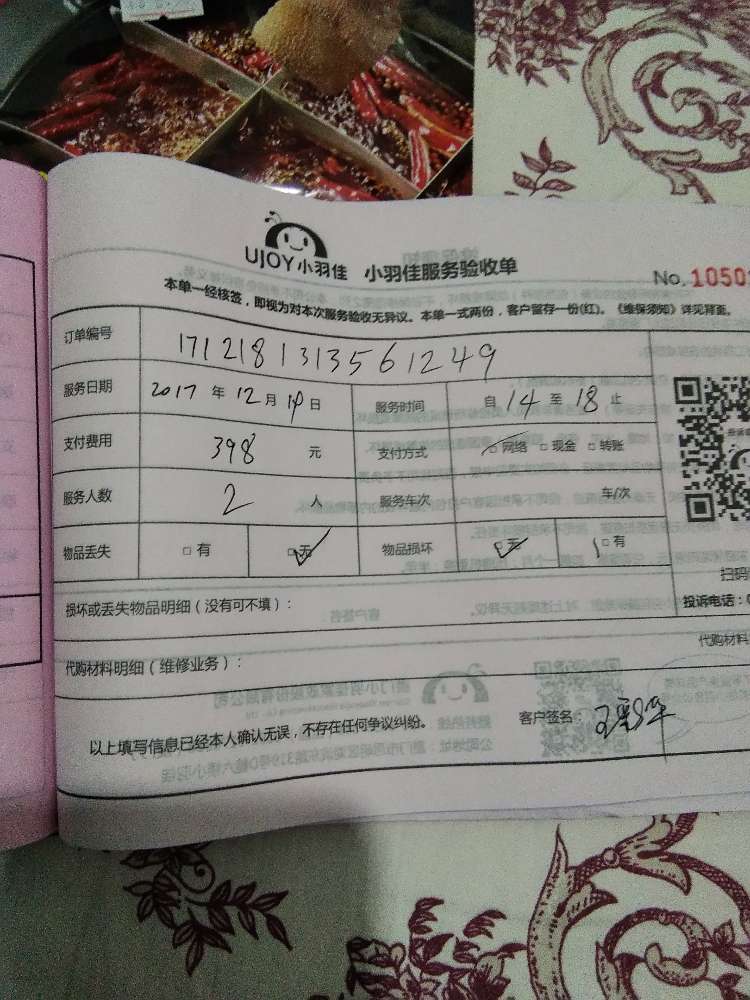 UJOY小羽佳 小羽佳服务验收单
No. 1050
本单一经核签，即视为对本次服务验收无异议。本单一式两份，客户留存一份(红)。《维保须知》详见背面。
订单编号 171218131356 1249
服务日期 2017 年 12 月 日 服务时间 自 14 至 18 止
支付费用 398 元 支付方式 □网络 □现金 □转账
服务人数 2 人 服务车次 车/次
物品丢失 □有 □无 物品损坏 □无 □有
扫码
损坏或丢失物品明细（没有可不填）：
投诉电话：0
代购材料
代购材料明细（维修业务）：
以上填写信息已经本人确认无误，不存在任何争议纠纷。 客户签名：